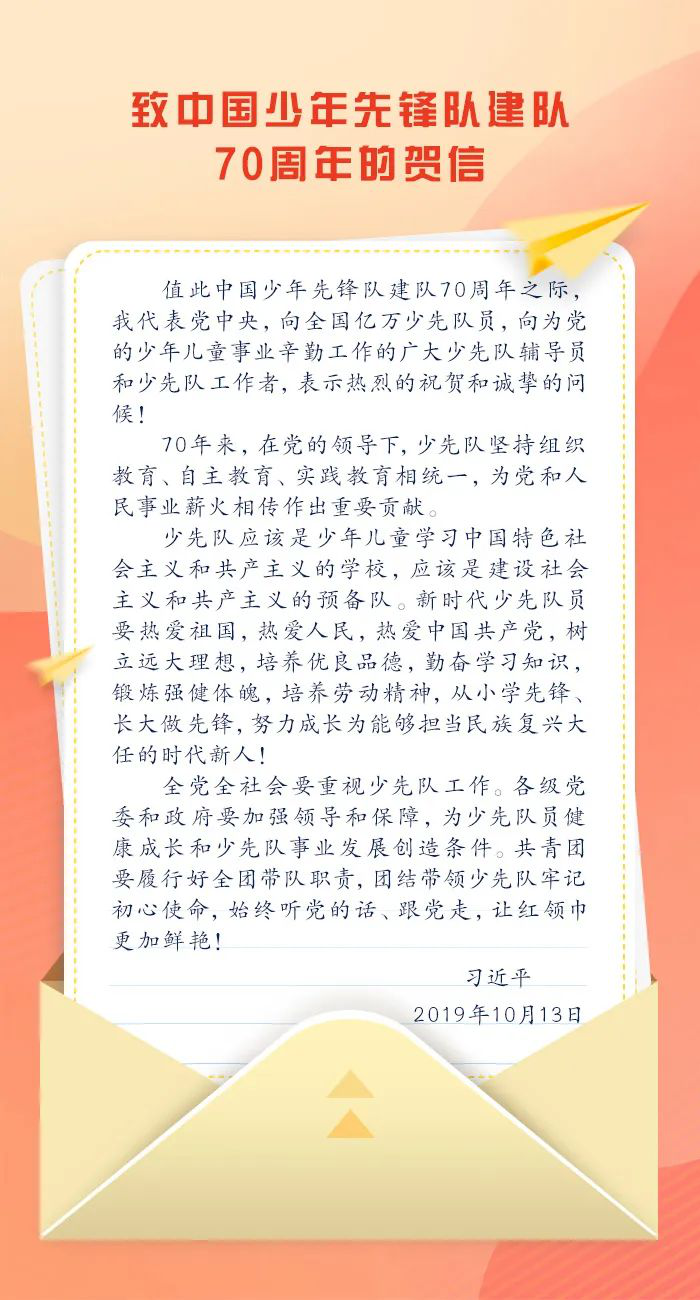 致中国少年先锋队建队
70周年的贺信
值此中国少年先锋队建队70周年之际，
我代表党中央，向全国亿万少先队员，向为党
的少年儿童事业辛勤工作的广大少先队辅导员
和少先队工作者，表示热烈的祝贺和诚挚的问
候！
70年来，在党的领导下，少先队坚持组织
教育、自主教育、实践教育相统一，为党和人
民事业薪火相传作出重要贡献。
少先队应该是少年儿童学习中国特色社
会主义和共产主义的学校，应该是建设社会
主义和共产主义的预备队。新时代少先队员
要热爱祖国，热爱人民，热爱中国共产党，树
立远大理想，培养优良品德，勤奋学习知识，
锻炼强健体魄，培养劳动精神，从小学先锋、
长大做先锋，努力成长为能够担当民族复兴大
任的时代新人！
全党全社会要重视少先队工作。各级党
委和政府要加强领导和保障，为少先队员健
康成长和少先队事业发展创造条件。共青团
要履行好全团带队职责，团结带领少先队牢记
初心使命，始终听党的话、跟党走，让红领巾
更加鲜艳！
习近平
2019年10月13日